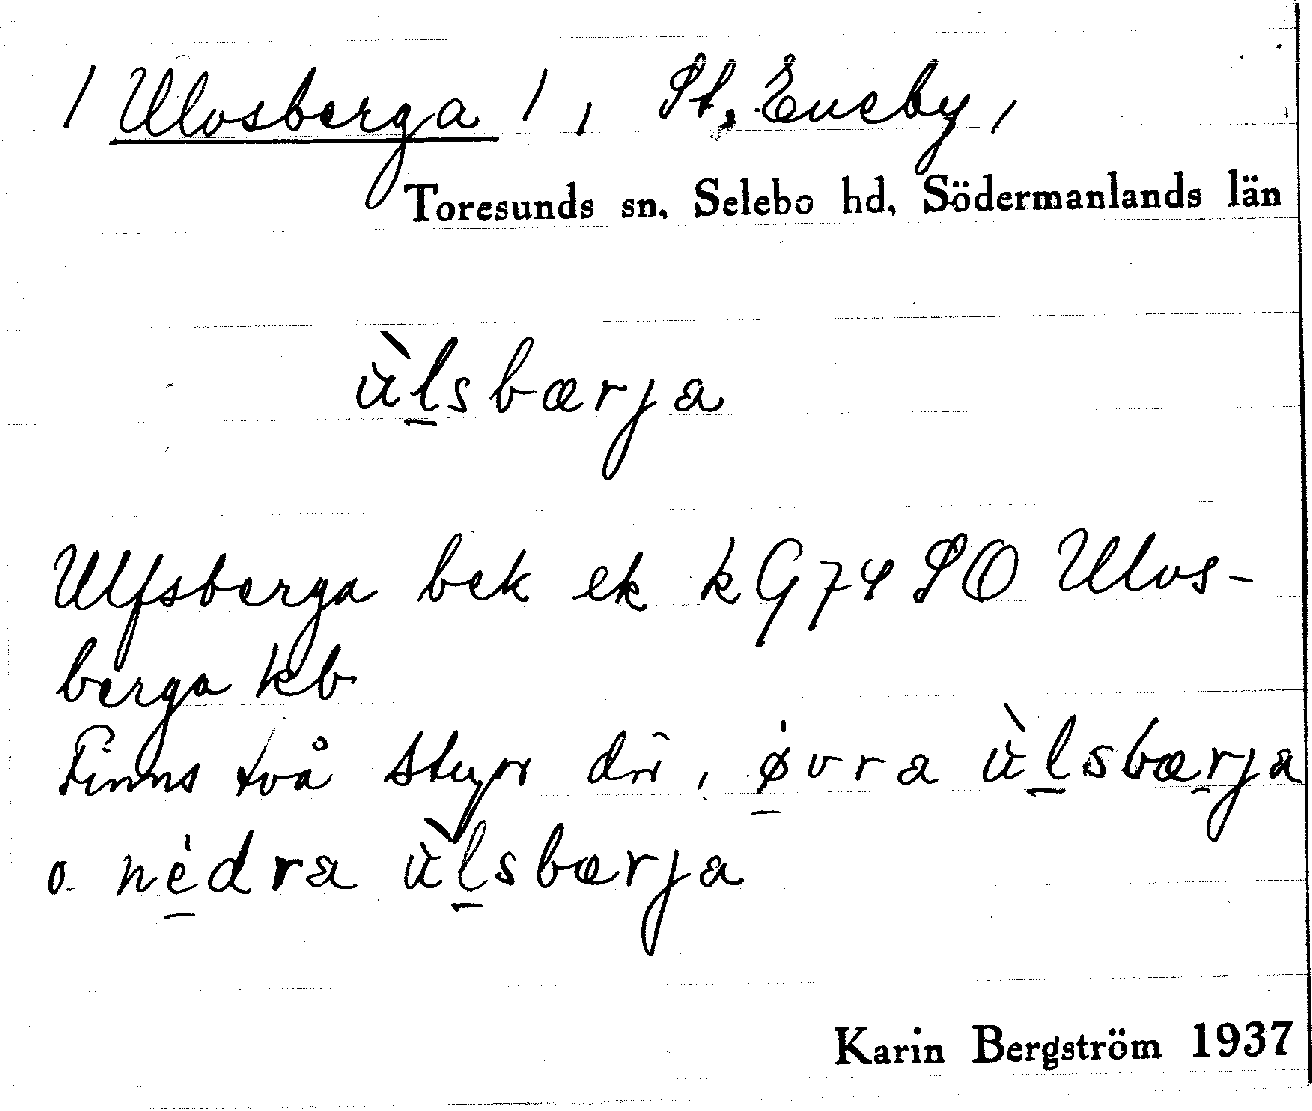 / Ulvsberga / , St. Eneby,
Toresunds sn. Selebo hd, Södermanlands län
ùlsbærja
Ulfsberga bek ek kG74 SO Ulvs-
berga kb
Finns två styn där, øvra ùlsbærja
o. nèdra ùlsbærja
Karin Bergström 1937